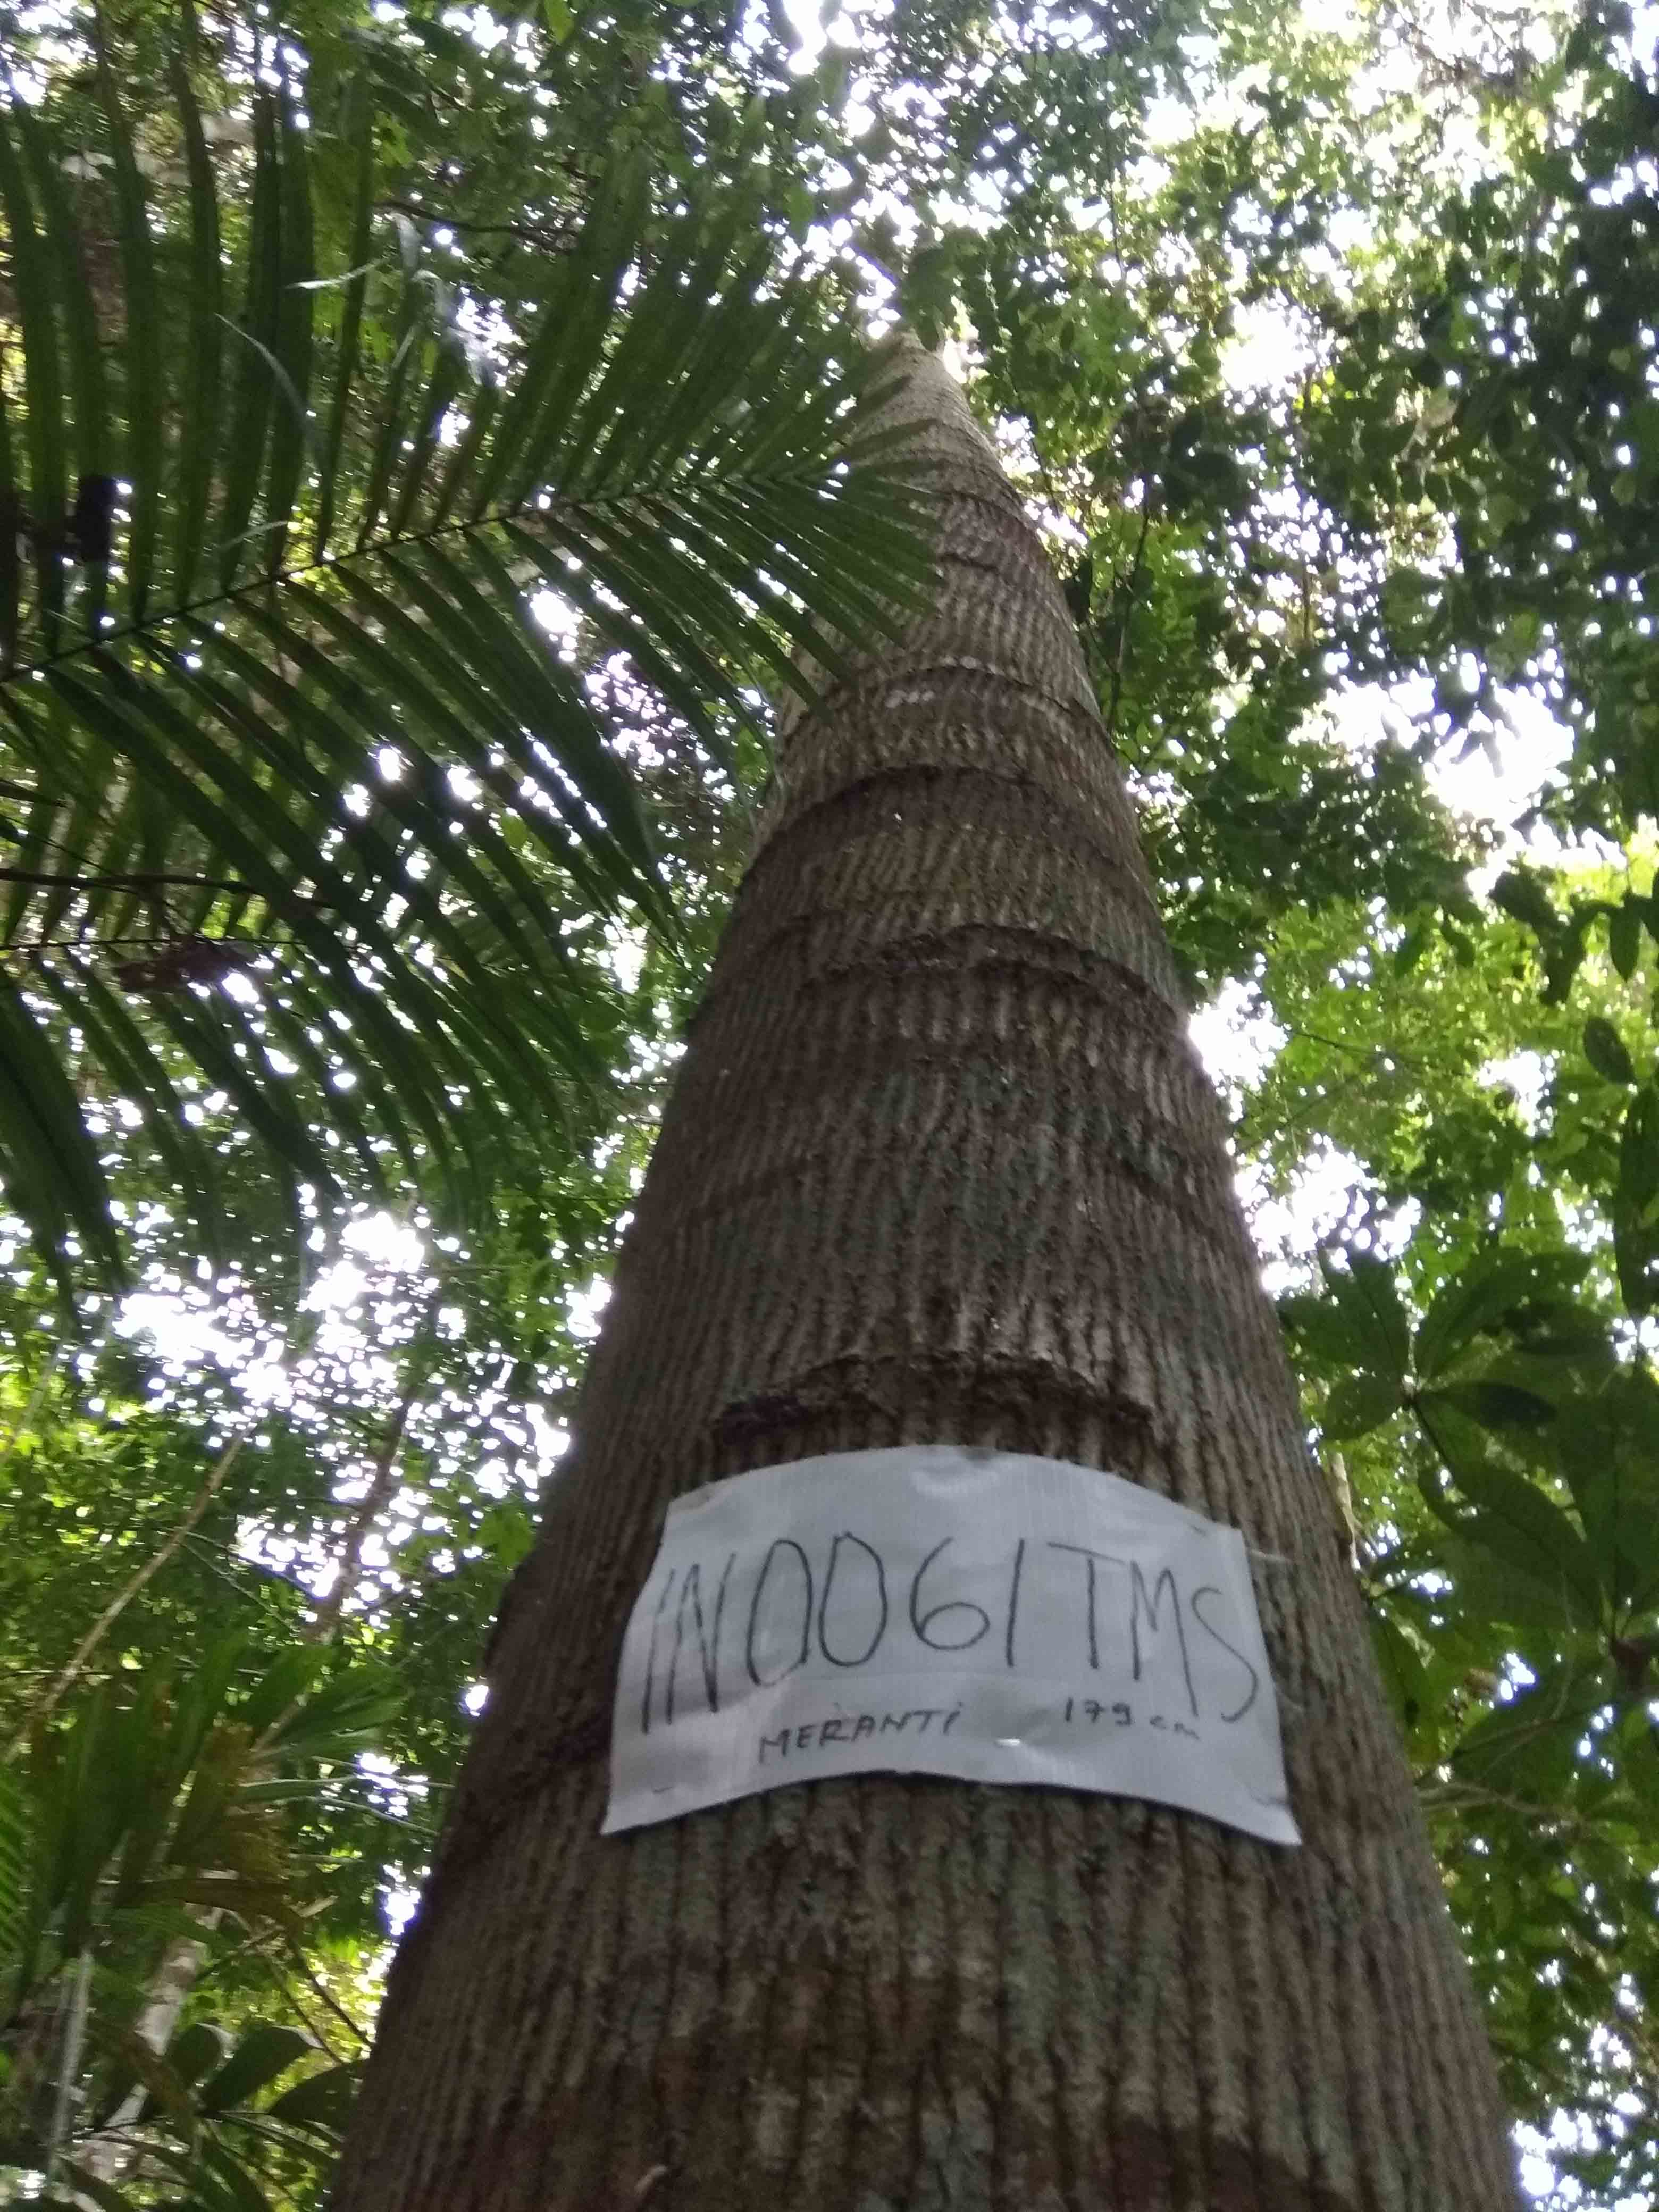 IN0061TMS
MERANTI 179 cm